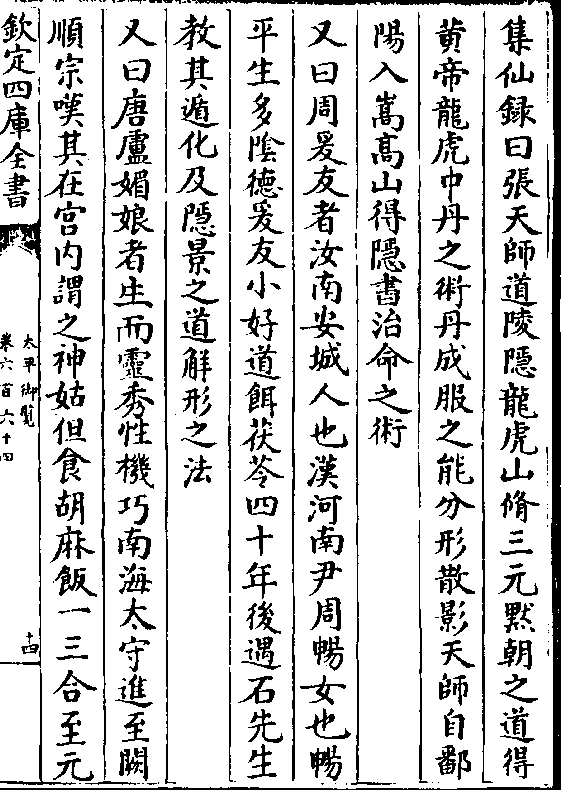 集仙録曰張天師道陵隱龍虎山脩三元黙朝之道得
黄帝龍虎中丹之術丹成服之能分形散影天師自鄱
陽入嵩髙山得隱書治命之術
又曰周爰友者汝南安城人也漢河南尹周暢女也暢
平生多隂德爰友小好道餌茯苓四十年後遇石先生
教其遁化及隱景之道解形之法
又曰唐盧媚娘者生而靈秀性機巧南海太守進至闕
順宗嘆其在宫内謂之神姑但食胡麻飯一三合至元
欽定四庫全書
太平御覧
卷六百六十四
十四